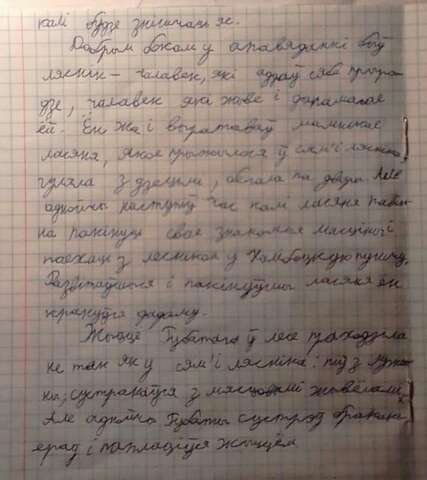 калі будзе знішчацца.
Добрым бокам у апавяданні быў
ляснік – чалавек, які аддаў сябе прыро-
дзе, чалавек яки жыве і дапамагае
ёй. Ён жа і выратаваў маленькае
ласяня, якое прыжылося ў сям'і лясніка
гуляла з дзецьмі, бегала па двары. Але
аднойчы наступіў час калі ласяня павін-
на пакінуць свае знаёмыя мясціны і
паехаць з лесніком у пушчу.
Развітаўшыся і пакінуўшы ласяня ён
крануўся дадому.
Жыццё Губатага ў лесе праходзіла
не так як у сям'і лясніка: піў з лужы-
ны, сустракаўся з мясцовымі жывёламі.
Але аднойчы Губаты сустрэў бракань-
ераў і паплаціўся жыццём